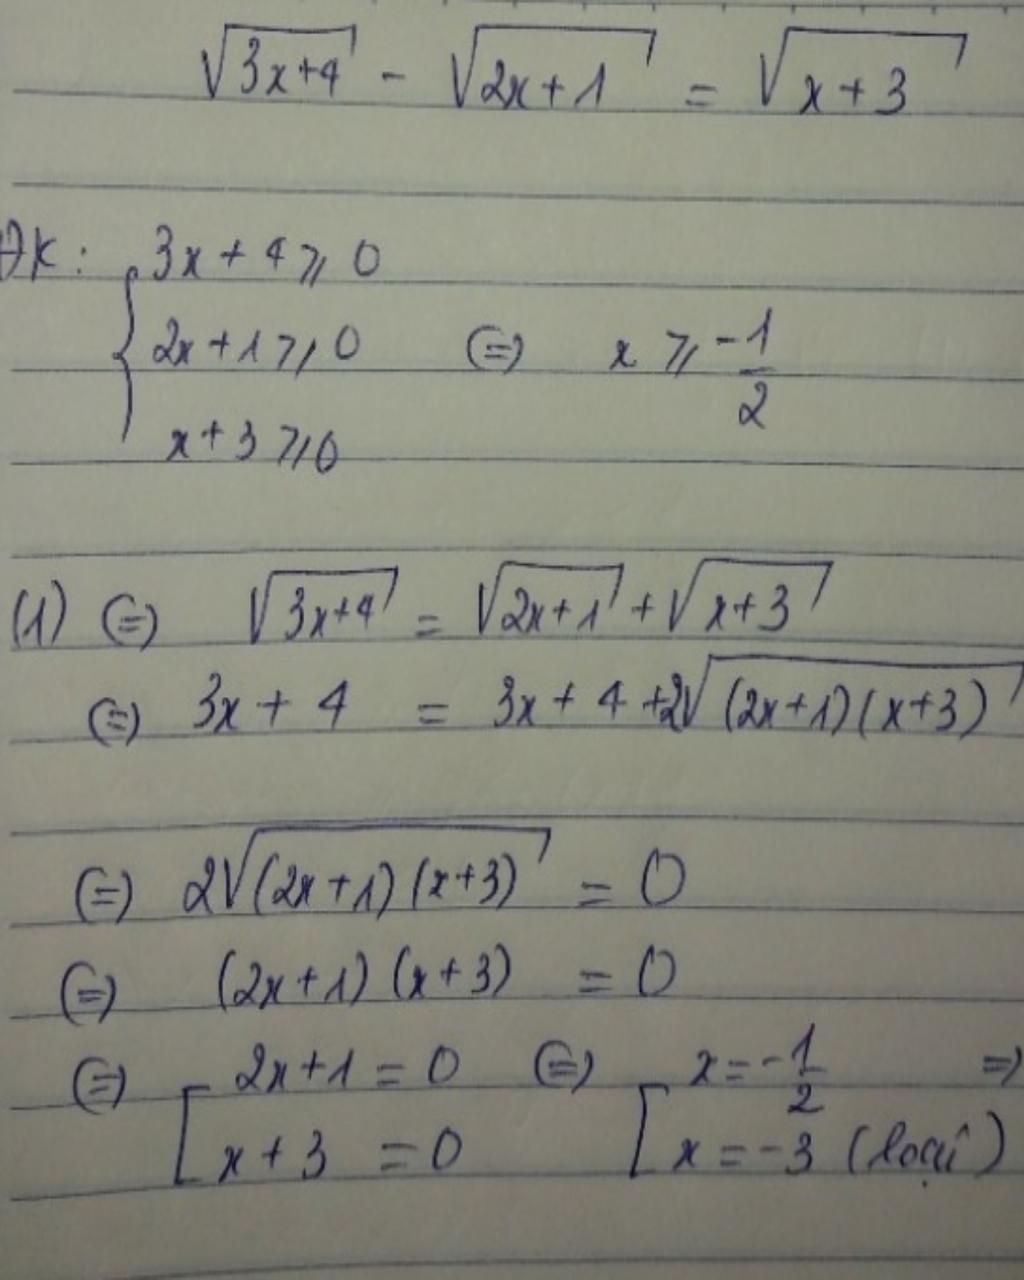 √3x+4 - √2x+1 = √x+3
ĐK: { 3x + 4 ⩾ 0
2x + 1 ⩾ 0 (=) x ⩾ -1/2
x + 3 ⩾ 0
(1) (=) √3x+4 = √2x+1 + √x+3
(=) 3x + 4 = 3x + 4 + 2√(2x+1)(x+3)
(=) 2√(2x+1)(x+3) = 0
(=) (2x+1)(x+3) = 0
(=) [ 2x+1 = 0 (=) [ x = -1/2 =)
x + 3 = 0 x = -3 (loại)